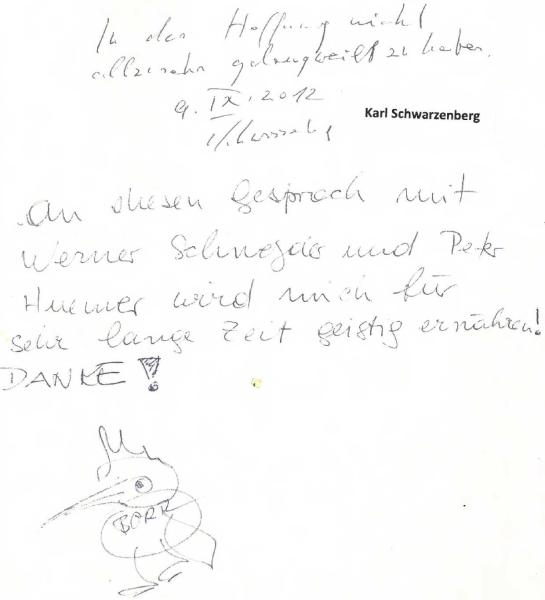 In der Hoffnung nicht
allzusehr gelangweilt zu haben.
9. IX. 2012
Karl Schwarzenberg
An diesen Gespräch mit
Werner Schneyder und Peter
Huemer wird mich für
sehr lange Zeit geistig ernähren!
DANKE!